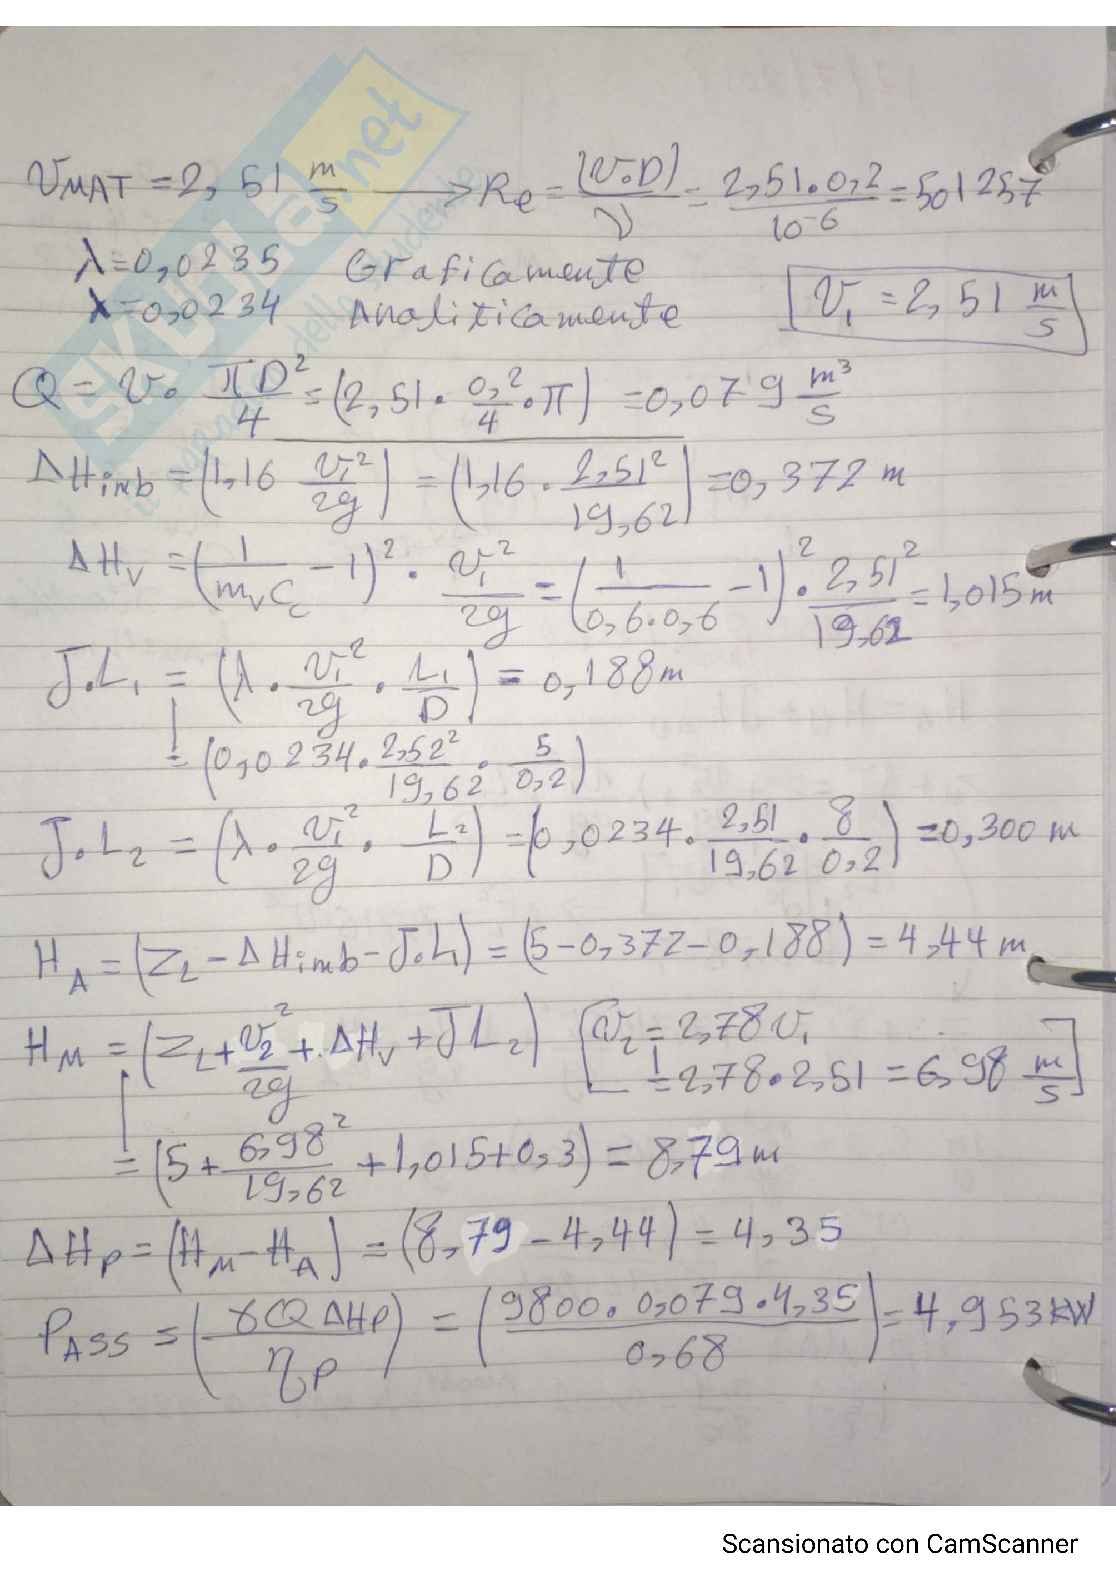 VMAT = 2,51 m/s → Re = (V·D)/ν = 2,51·0,2/10^-6 = 501257
λ=0,0235 Graficamente
λ=0,0234 Analiticamente
V1 = 2,51 m/s
Q = V· πD²/4 = (2,51· 0,²/4 ·π) = 0,079 m³/s
ΔHimb = (1,16 V1²/2g) = (1,16· 2,51²/19,62) = 0,372 m
ΔHV = (1/mvCc − 1)² · V1²/2g = (1/0,6·0,6 − 1)² · 2,51²/19,62 = 1,015 m
J·L1 = (λ· V1²/2g · L1/D) = 0,188 m
= (0,0234· 2,52²/19,62 · 5/0,2)
J·L2 = (λ· V1²/2g · L2/D) = (0,0234· 2,51/19,62 · 8/0,2) = 0,300 m
HA = (ZL − ΔHimb − J·L1) = (5−0,372−0,188) = 4,44 m
HM = (ZL + V2²/2g + ΔHV + JL2) [V2 = 2,78 V1
= 2,78·2,51 = 6,98 m/s]
= (5 + 6,98²/19,62 + 1,015+0,3) = 8,79 m
ΔHP = (HM − HA) = (8,79 − 4,44) = 4,35
PASS = (γQΔHP/ηP) = (9800·0,079·4,35/0,68) = 4,953 kW
SKUOLA.net
Scansionato con CamScanner